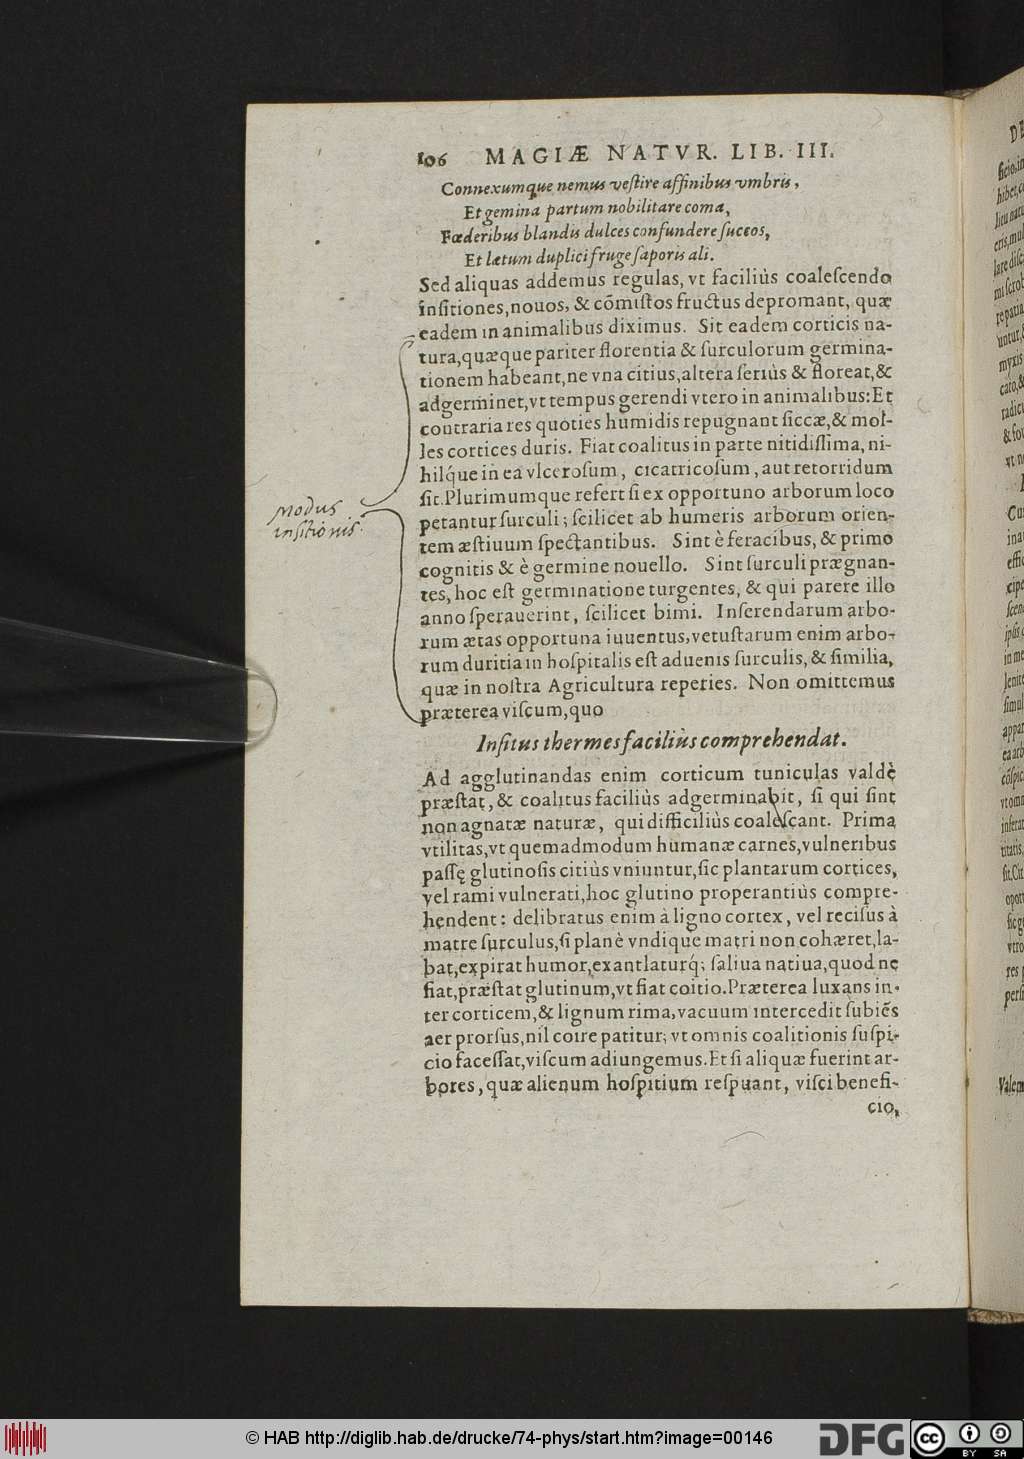 106 MAGIÆ NATVR. LIB. III.
Connexumque nemus veſtire affinibus vmbris,
Et gemina partum nobilitare coma,
Fœderibus blandis dulces confundere ſuccos,
Et lætum duplici fruge ſaporis ali.
Sed aliquas addemus regulas, vt faciliùs coaleſcendo
inſitiones, nouos, & cõmiſtos fructus depromant, quæ
eadem in animalibus diximus. Sit eadem corticis na-
tura, quæque pariter florentia & ſurculorum germina-
tionem habeant, ne vna citius, altera ſeriùs & floreat, &
adgerminet, vt tempus gerendi vtero in animalibus: Et
contraria res quoties humidis repugnant ſiccæ, & mol-
les cortices duris. Fiat coalitus in parte nitidiſſima, ni-
hilq́ue in ea vlceroſum, cicatricoſum, aut retorridum
ſit. Plurimumque refert ſi ex opportuno arborum loco
petantur ſurculi; ſcilicet ab humeris arborum orien-
tem æſtiuum ſpectantibus. Sint è feracibus, & primo
cognitis & è germine nouello. Sint ſurculi prægnan-
tes, hoc eſt germinatione turgentes, & qui parere illo
anno ſperauerint, ſcilicet bimi. Inſerendarum arbo-
rum ætas opportuna iuuentus, vetuſtarum enim arbo-
rum duritia in hoſpitalis eſt aduenis ſurculis, & ſimilia,
quæ in noſtra Agricultura reperies. Non omittemus
præterea viſcum, quo
Modus
inſitionis.
Inſitus thermes faciliùs comprehendat.
Ad agglutinandas enim corticum tuniculas valdè
præſtat, & coalitus faciliùs adgerminabit, ſi qui ſint
non agnatæ naturæ, qui difficiliùs coaleſcant. Prima
vtilitas, vt quemadmodum humanæ carnes, vulneribus
paſſę glutinoſis citiùs vniuntur, ſic plantarum cortices,
vel rami vulnerati, hoc glutino properantiùs compre-
hendent: delibratus enim à ligno cortex, vel reciſus à
matre ſurculus, ſi planè vndique matri non cohæret, la-
bat, expirat humor, exantlaturq́; ſaliua natiua, quod ne
fiat, præſtat glutinum, vt fiat coitio. Præterea luxans in-
ter corticem, & lignum rima, vacuum intercedit ſubiẽs
aer prorſus, nil coire patitur; vt omnis coalitionis ſuſpi-
cio faceſſat, viſcum adiungemus. Et ſi aliquæ fuerint ar-
bores, quæ alienum hoſpitium reſpuant, viſci benefi-
cio,
© HAB http://diglib.hab.de/drucke/74-phys/start.htm?image=00146
DFG
cc BY SA